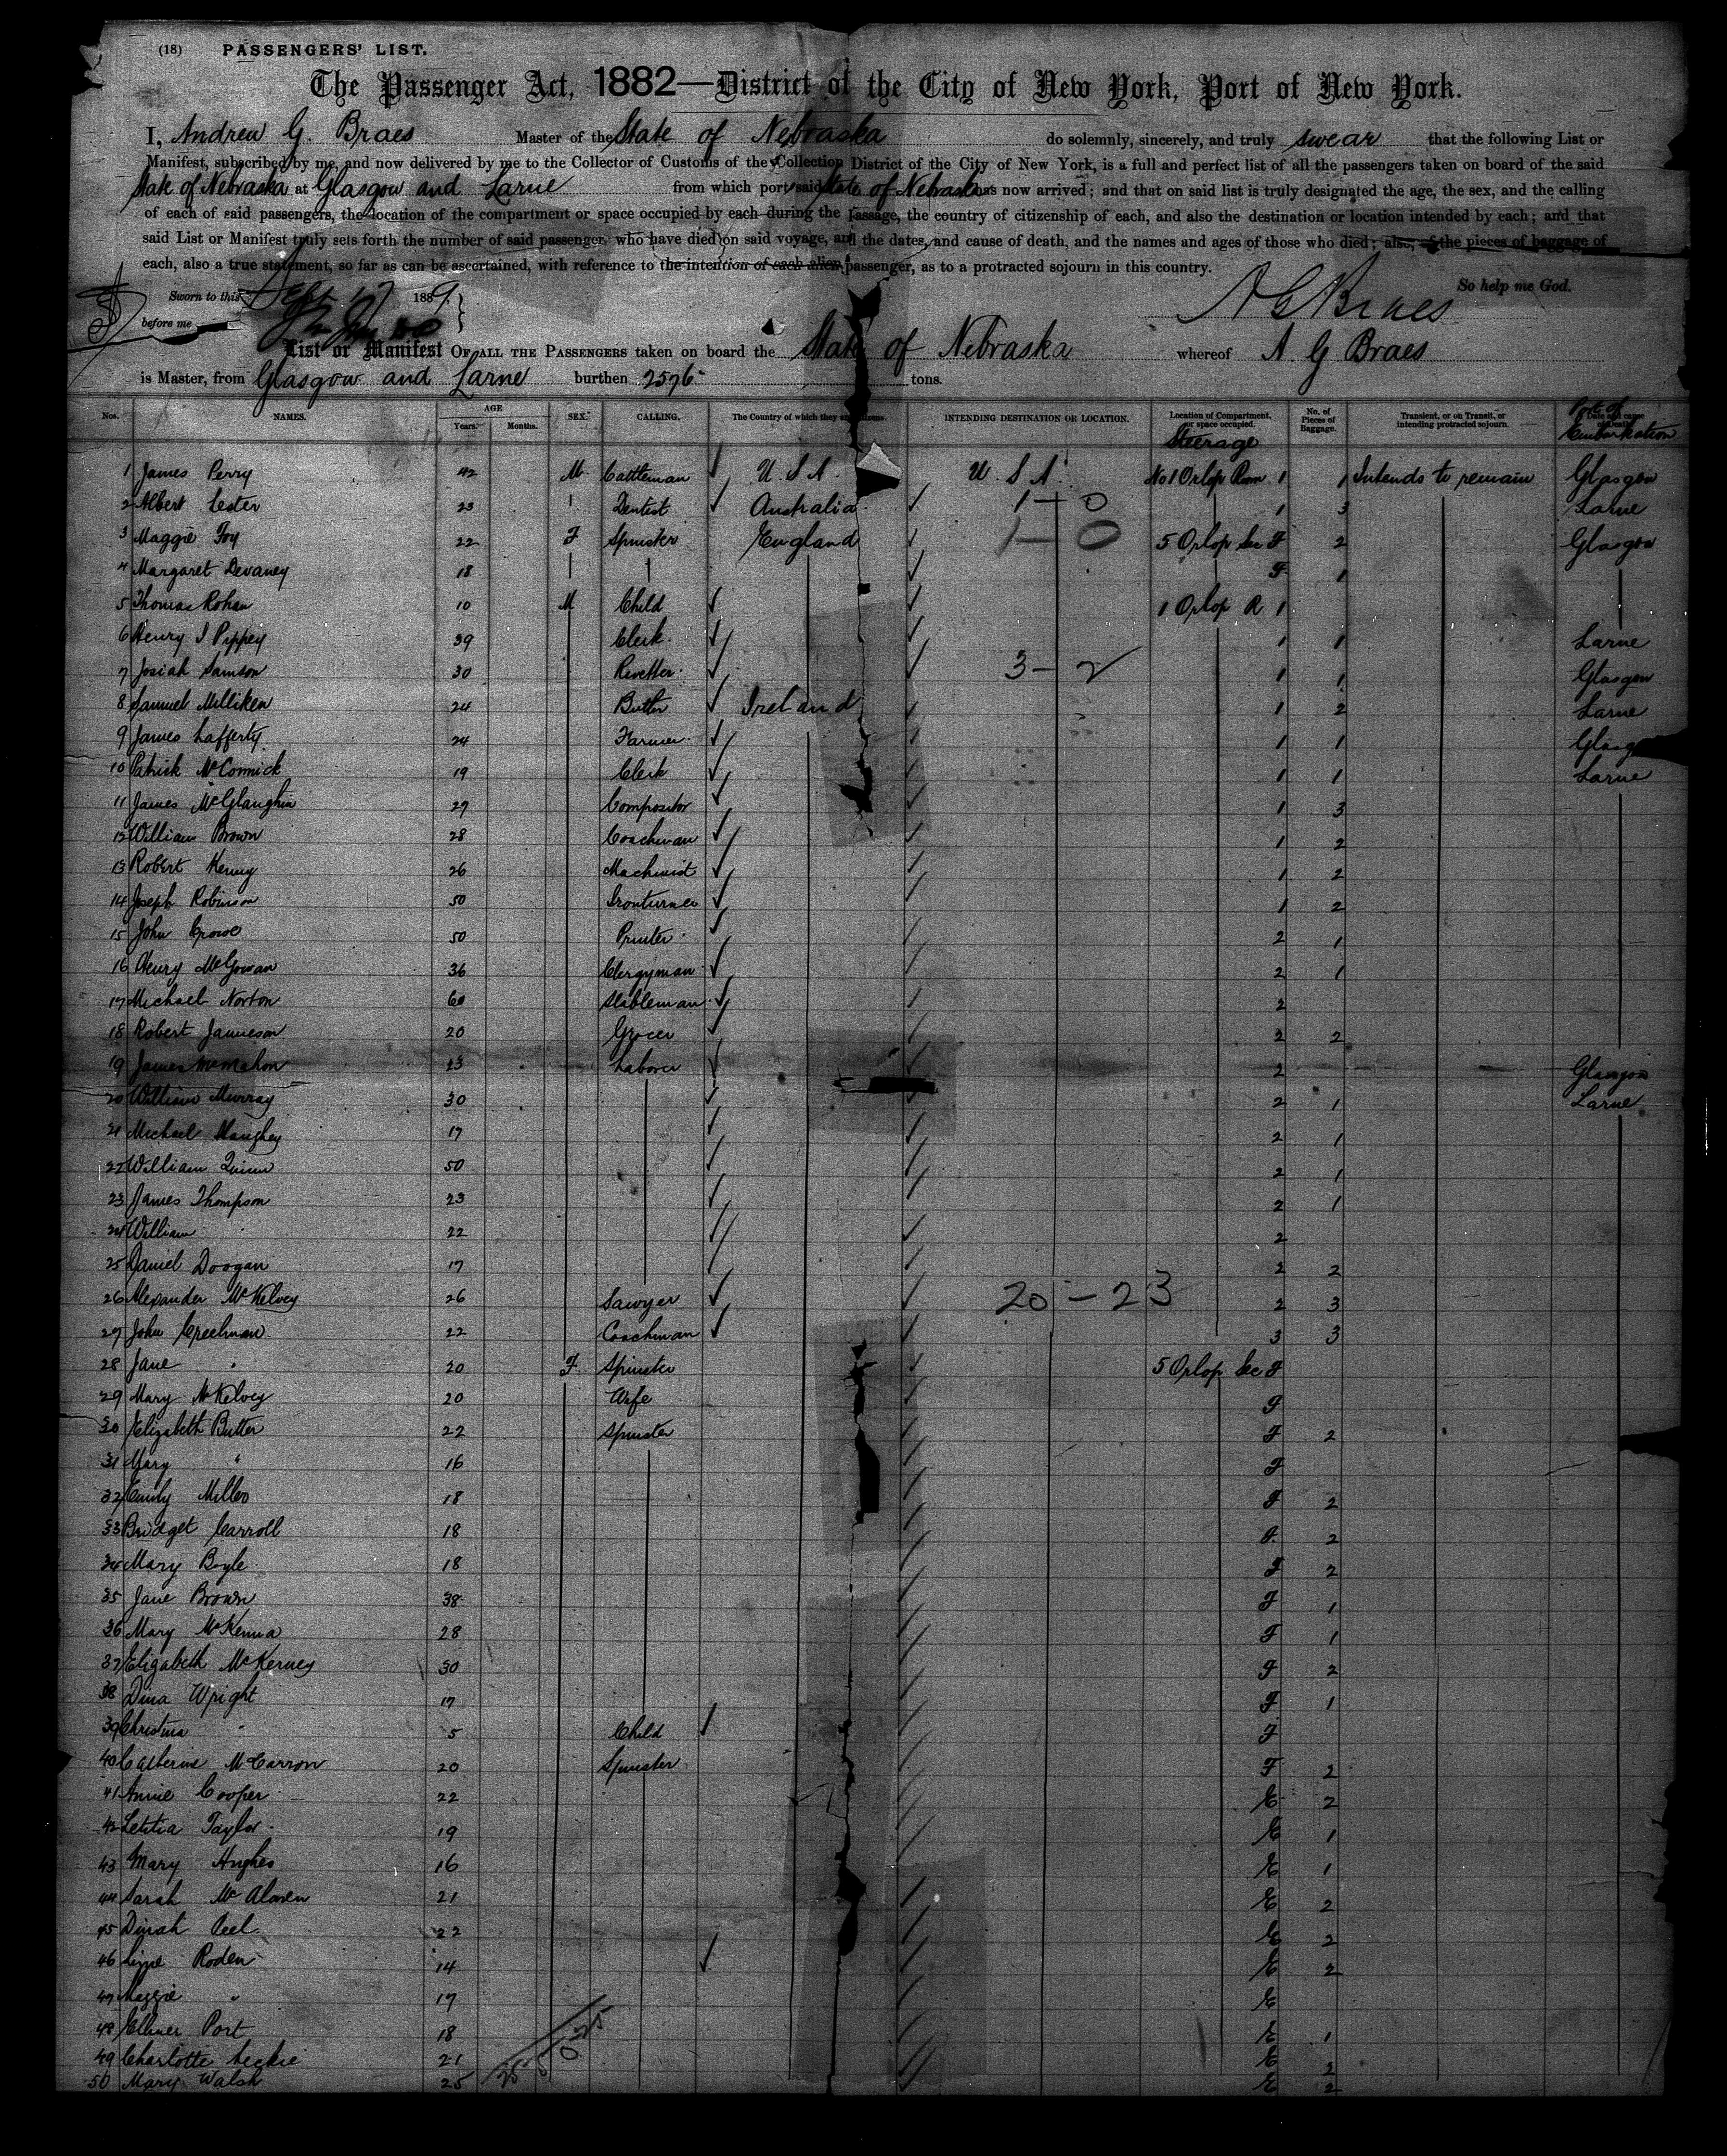 (18) PASSENGERS' LIST.
The Passenger Act, 1882—District of the City of New York, Port of New York.
I, Andrew G. Braes Master of the State of Nebraska do solemnly, sincerely, and truly swear that the following List or
Manifest, subscribed by me, and now delivered by me to the Collector of Customs of the Collection District of the City of New York, is a full and perfect list of all the passengers taken on board of the said
State of Nebraska at Glasgow and Larne from which port said State of Nebraska has now arrived; and that on said list is truly designated the age, the sex, and the calling
of each of said passengers, the location of the compartment or space occupied by each during the passage, the country of citizenship of each, and also the destination or location intended by each; and that
said List or Manifest truly sets forth the number of said passengers who have died on said voyage, and the dates, and cause of death, and the names and ages of those who died; also, of the pieces of baggage of
each, also a true statement, so far as can be ascertained, with reference to the intention of each alien passenger, as to a protracted sojourn in this country.
Sworn to this Sept 17 1889 So help me God.
before me A G Braes
List or Manifest OF ALL THE PASSENGERS taken on board the State of Nebraska whereof A G Braes
is Master, from Glasgow and Larne burthen 2576 tons.
Nos. NAMES. AGE Years. Months. SEX. CALLING. The Country of which they are citizens. INTENDING DESTINATION OR LOCATION. Location of Compartment, or space occupied. Steerage No. of Pieces of Baggage. Transient, or on Transit, or intending protracted sojourn. Port of Embarkation
1 James Perry 42 M Cattleman U.S.A. U.S.A. No 1 Orlop Room 1 1 Intends to remain Glasgow
2 Albert Lester 23 " Dentist Australia 1 – 0 1 3 Larne
3 Maggie Foy 22 F Spinster England 1 – 0 5 Orlop Sec F 2 Glasgow
4 Margaret Devaney 18 F 1
5 Thomas Rohan 10 M Child 1 Orlop R 1
6 Henry J Pippey 39 Clerk 1 1 Larne
7 Josiah Samson 30 Rivetter 3 – 2 1 1 Glasgow
8 Samuel Milliken 24 Butler Ireland 1 2 Larne
9 James Lafferty 24 Farmer 1 1 Glasgow
10 Patrick McCormick 19 Clerk 1 1 Larne
11 James McGlaughin 27 Compositor 1 3
12 William Brown 28 Coachman 1 2
13 Robert Kenny 26 Machinist 1 2
14 Joseph Robinson 50 Ironturner 1 2
15 John Crowe 50 Printer 2 1
16 Henry McGowan 36 Clergyman 2 1
17 Michael Norton 60 Stableman 2
18 Robert Jamieson 20 Grocer 2 2
19 James McMahon 23 Laborer 2 Glasgow
20 William Murray 30 2 1 Larne
21 Michael Haughey 17 2 1
22 William Quinn 50 2 1
23 James Thompson 23 2 1
24 William " 22 2
25 Daniel Doogan 17 2 2
26 Alexander McKelvey 26 Sawyer 20 – 23 2 3
27 John Creelman 22 Coachman 3 3
28 Jane " 20 F Spinster 5 Orlop Sec F
29 Mary McKelvey 20 Wife F
30 Elizabeth Butter 22 Spinster F 2
31 Mary " 16 F
32 Emily Miller 18 F 2
33 Bridget Carroll 18 F 2
34 Mary Boyle 18 F 2
35 Jane Brown 38 F 1
36 Mary McKenna 28 F 1
37 Elizabeth McKerney 30 F 2
38 Dina Wright 17 F 1
39 Christina " 5 Child F
40 Catherine McCarron 20 Spinster F 2
41 Annie Cooper 22 E 2
42 Letitia Taylor 19 E 1
43 Mary Hughes 16 E 1
44 Sarah McAlonen 21 E 2
45 Dinah Peel 22 E 2
46 Lizzie Roden 14 E 2
47 Maggie " 17 E
48 Ellener Port 18 E 1
49 Charlotte Leckie 21 E 2
50 Mary Walsh 25 E 2